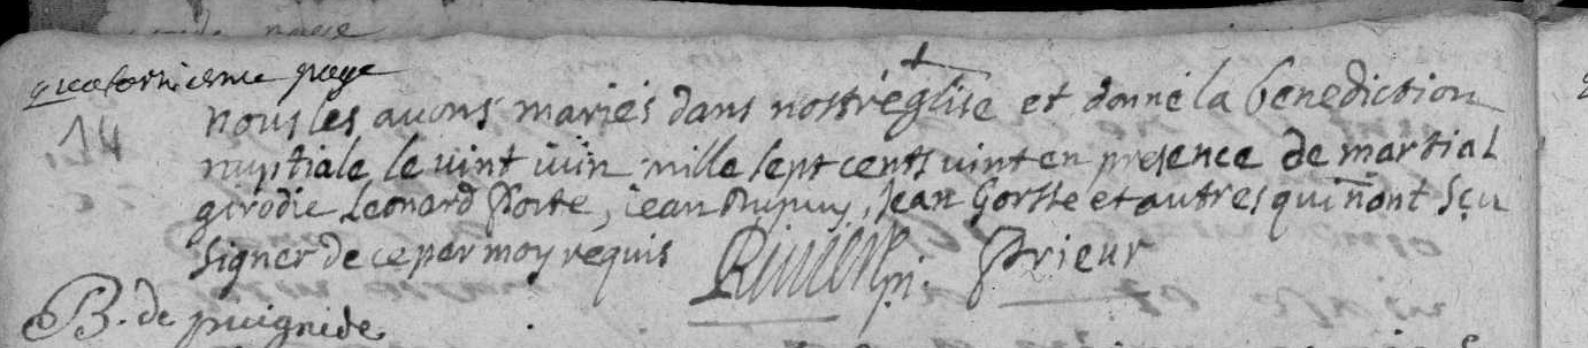 quatorzieme page
14
nous les avons mariés dans nostr'eglise et donné la benediction
nuptiale le vint iuin mille sept cents vint en presence de martial
girodie Leonard Porte, iean Dupuy, Jean Gorsse et autres qui n'ont sçu
signer de ce par moy requis Prieur
B. de puignide